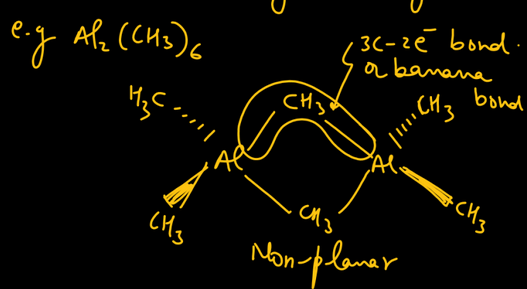 e.g Al₂(CH₃)₆
3C-2e⁻ bond.
or banana
bond
H₃C
CH₃
CH₃
Al
Al
CH₃
CH₃
CH₃
Non-planar